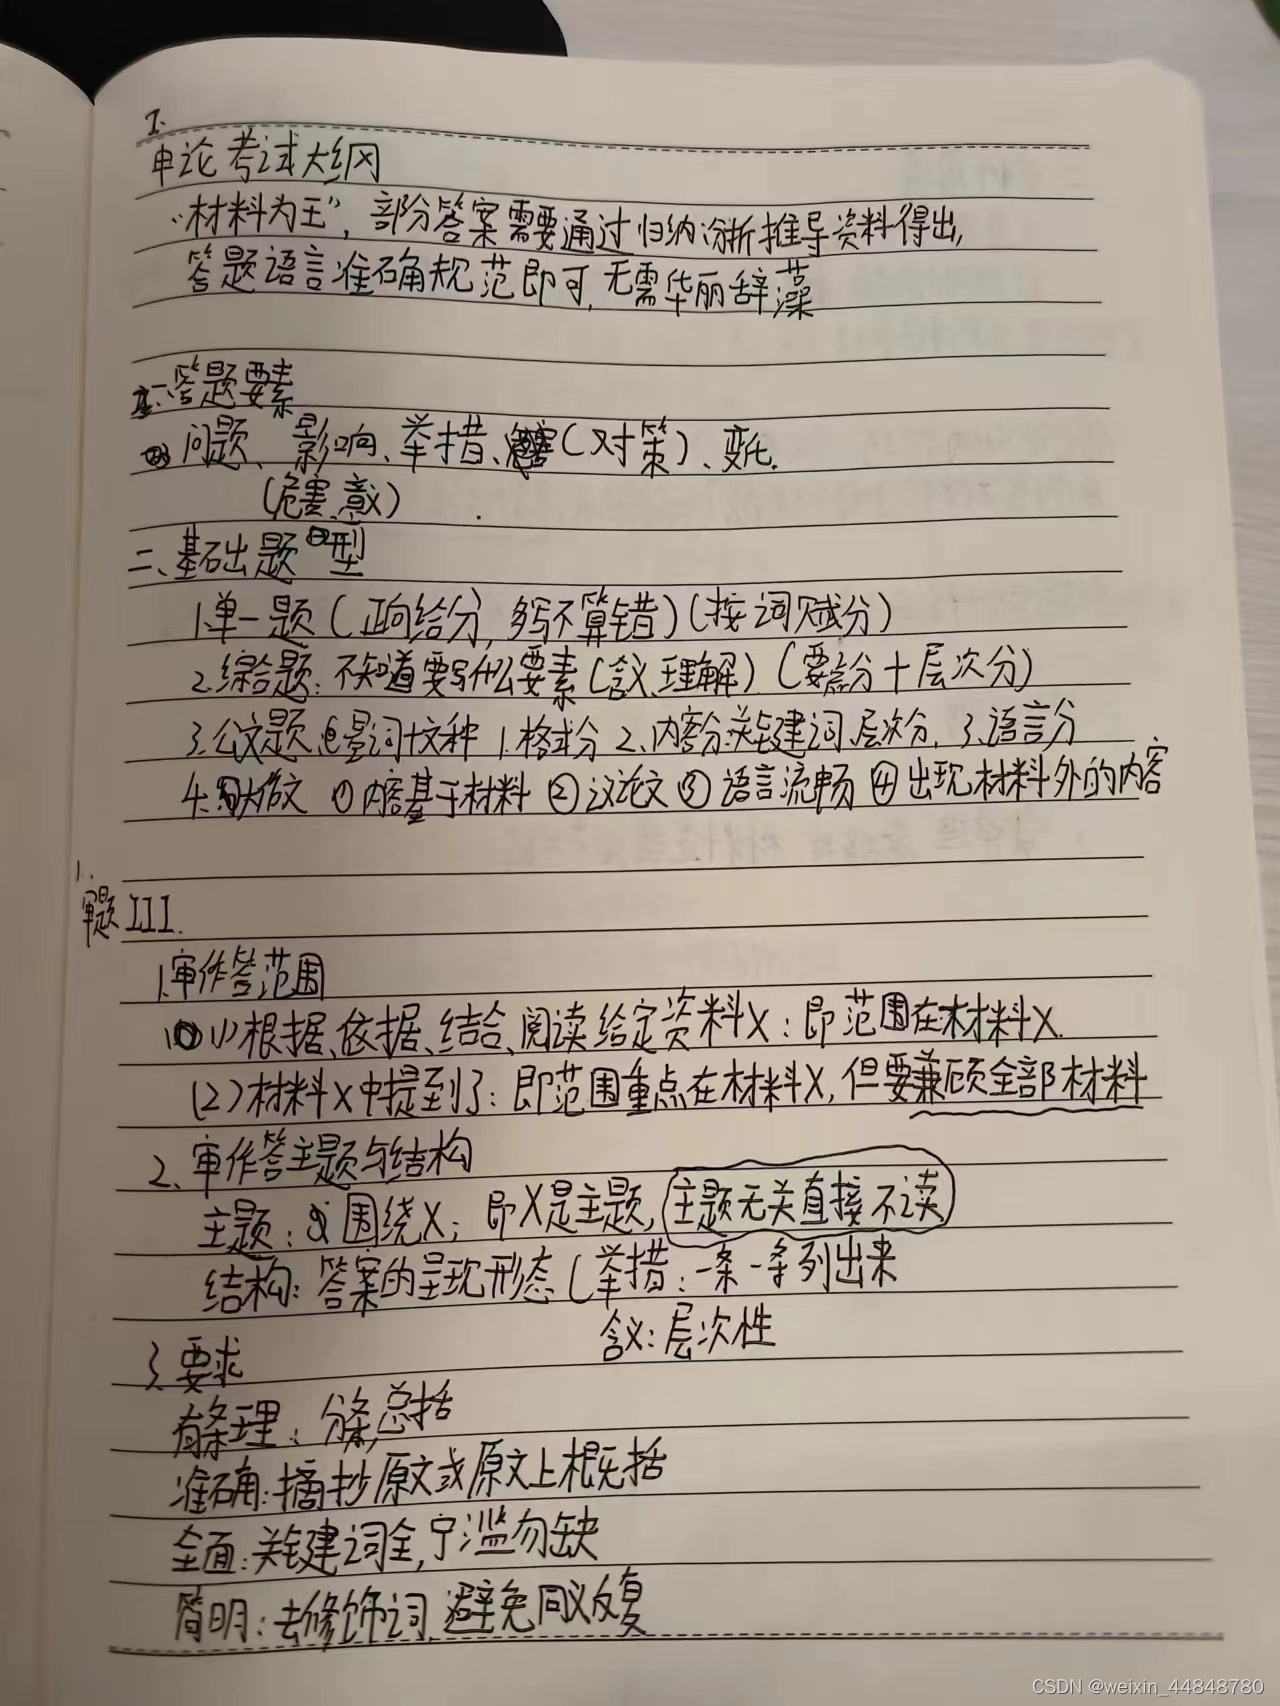 I.
申论考试大纲
“材料为王”，部分答案需要通过归纳分析推导资料得出，
答题语言准确规范即可，无需华丽辞藻
一、答题要素
问题、影响、举措、（对策）、变化.
（危害、意义）
二、基础出题型
1.单一题（正向给分，多写不算错）（按词赋分）
2.综合题：不知道要写什么要素（含义、理解）（要点分+层次分）
3.公文题 量词+文种 1.格式分 2.内容分:关键词 层次分. 3.语言分
4.大作文 ①内容基于材料 ②议论文 ③语言流畅 ④出现材料外的内容
1.
审题 III.
1.审作答范围
(1)根据、依据、结合、阅读给定资料X：即范围在材料X.
(2)材料X中提到了：即范围重点在材料X，但要兼顾全部材料
2.审作答主题与结构
主题：围绕X；即X是主题，主题无关直接不读
结构：答案的呈现形态（举措：一条一条列出来
含义：层次性
3.要求
有条理：分条,总括
准确：摘抄原文或原文上概括
全面：关键词全，宁滥勿缺
简明：去修饰词，避免同义反复
CSDN @weixin_44848780